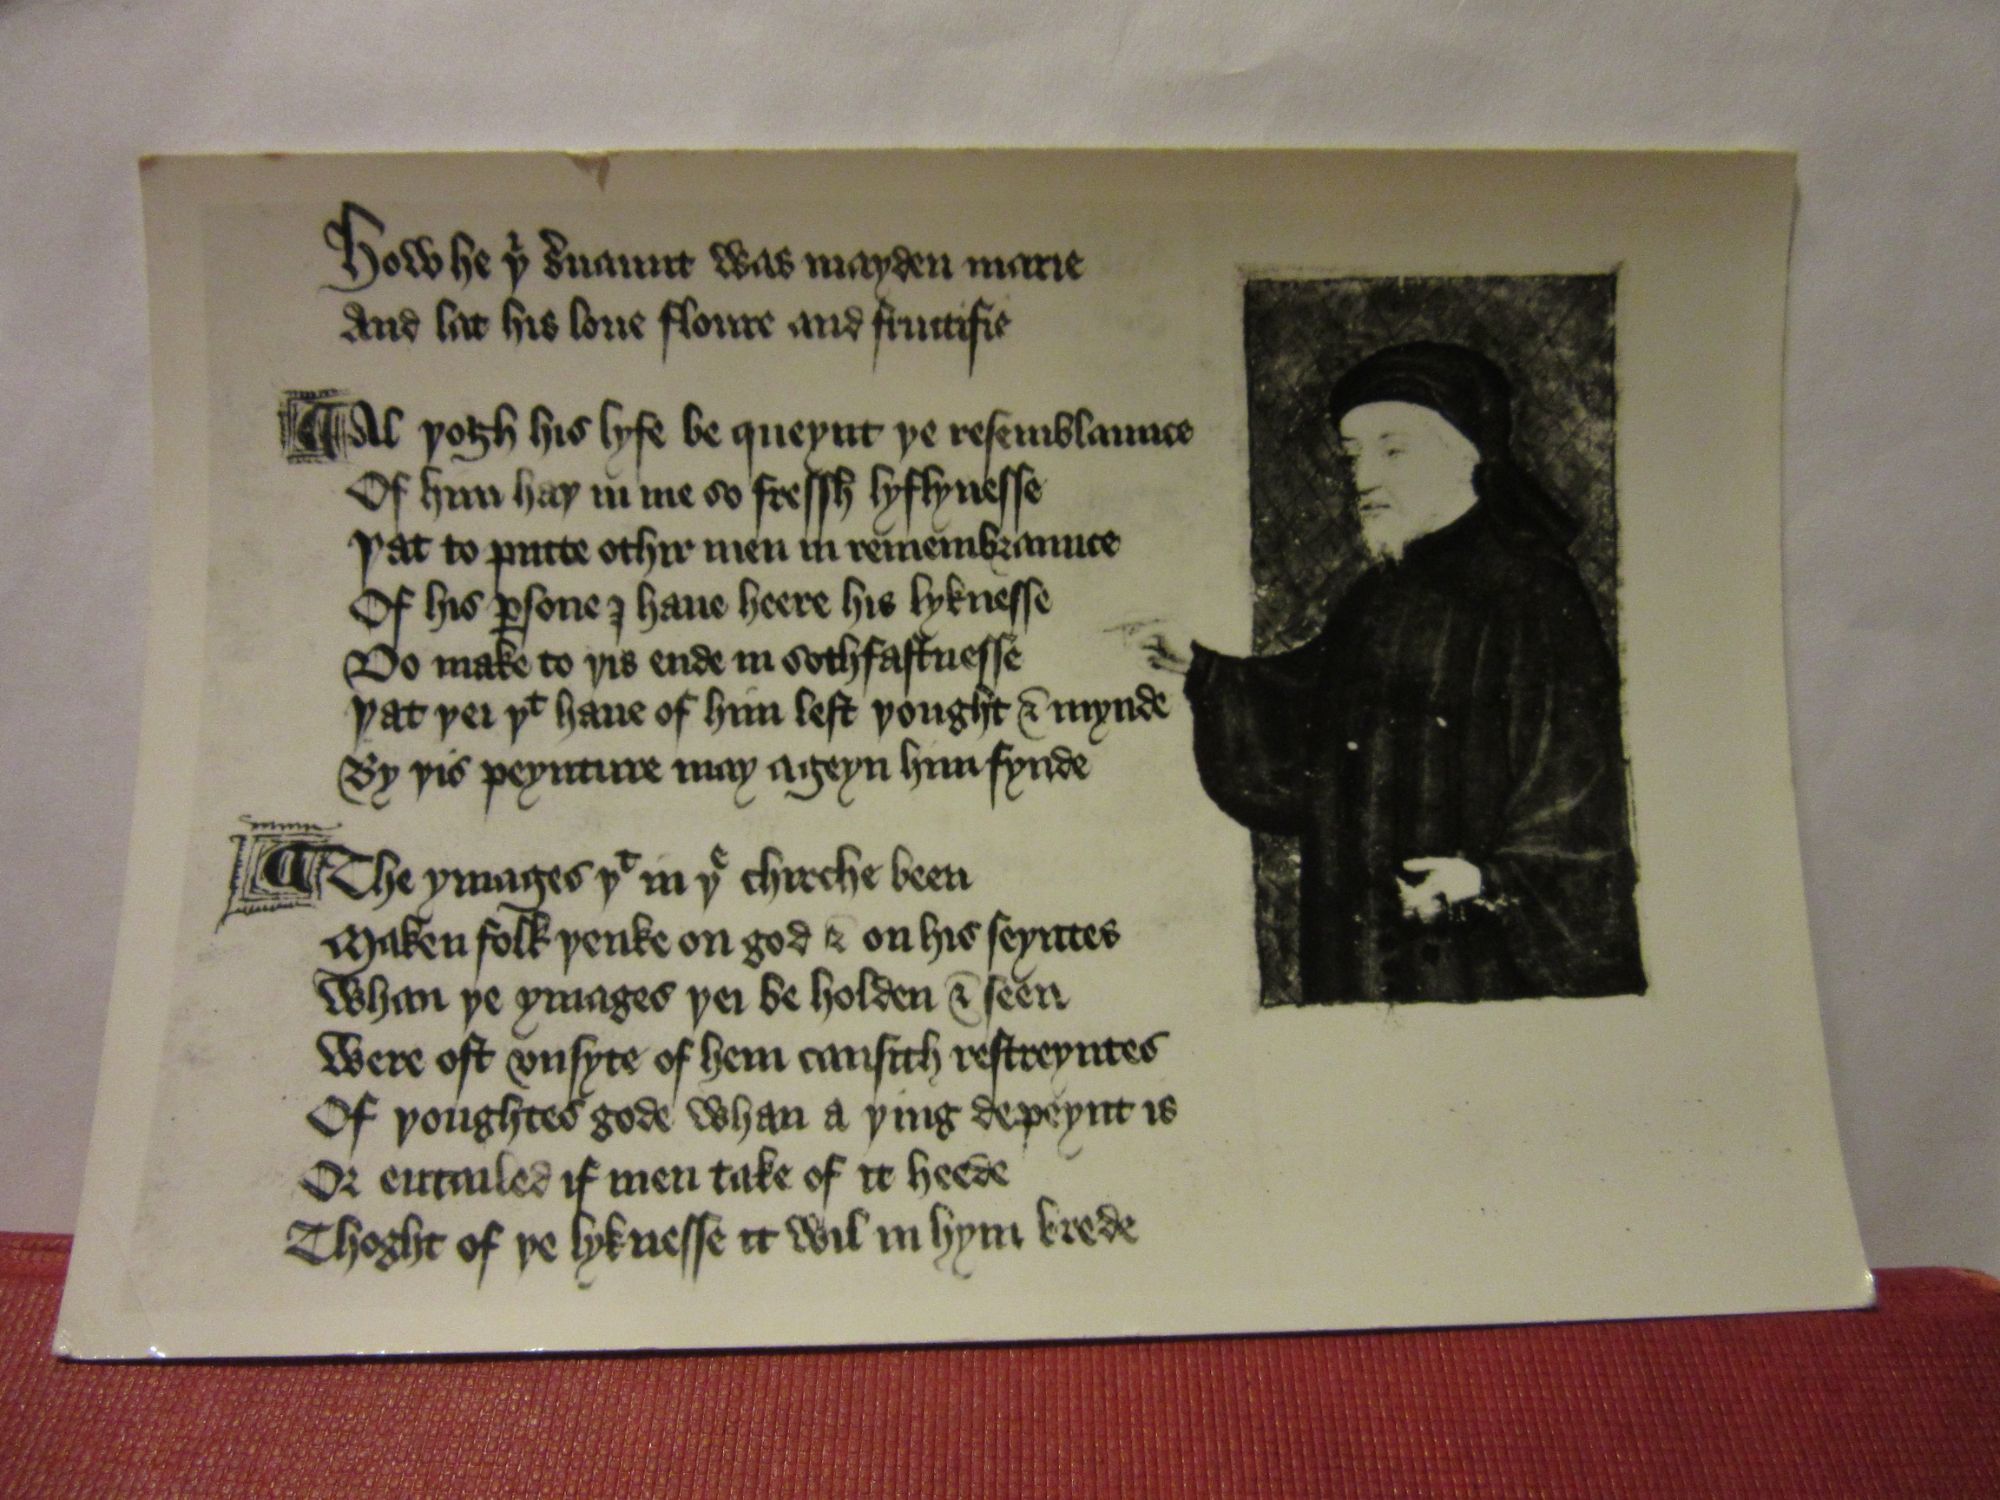 How he yͬ s̉uaunt was mayden marie
And lat his loue floure and fructifie
Al yogh his lyfe be queynt ye resemblaunce
Of him hay in me so fressh lyflynesse
Yat to putte othir men in remembraunce
Of his ꝑsone I haue heere his lyknesse
Do make to yis ende in sothfastnesse
Yat yei yͭ haue of him left yought & mynde
By yis peynture may ageyn him fynde
The ymages yͭ in yͤ chirche been
Maken folk yenke on god & on his seyntes
Whan ye ymages yei be holden & seen
Were oft vnsyte of hem causith restreyntes
Of youghtes gode whan a ying depeynt is
Or entailed if men take of it heede
Thoght of ye lyknesse it wil in hym brede